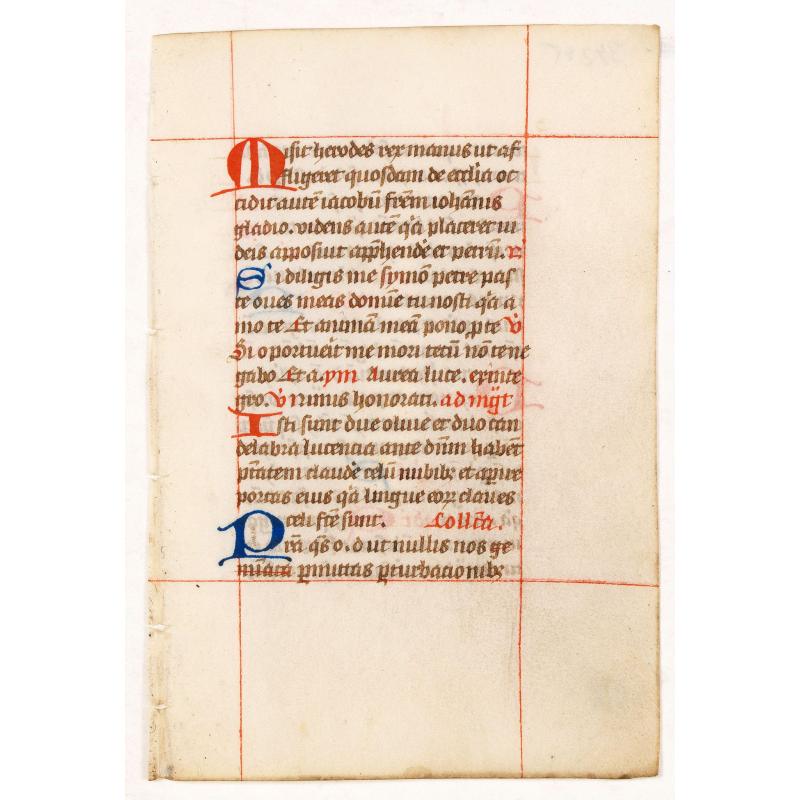 Misit herodes rex manus ut af
fligeret quosdam de eccl̄ia oc
cidit autē iacobū frēm iohānis
gladio. videns autē q̄a placeret iu
deis apposiuit app̄hendēe et petrū. R
Si diligis me symō petre pas
ce oues meas domīe tu nosti q̄a a
mo te Et animā meā pono ꝓ te v̄
Si oportueīt me mori tecū nō te ne
gabo Et a. ym Aurea luce. ex inte
gro. v̄ Nimis honorati. ad mg̅t
Isti sunt due oliue et duo can
delabra lucencia ante dn̄m habēt
ptātem claudē celū nubibꝫ et apīre
portas eius q̄a lingue eoꝝ claues
celi fc̄e sunt. Collc̄ta.
Pr̄a q̄s o. d ut nullis nos ꝑ
mittas ꝑturbacionibꝫ